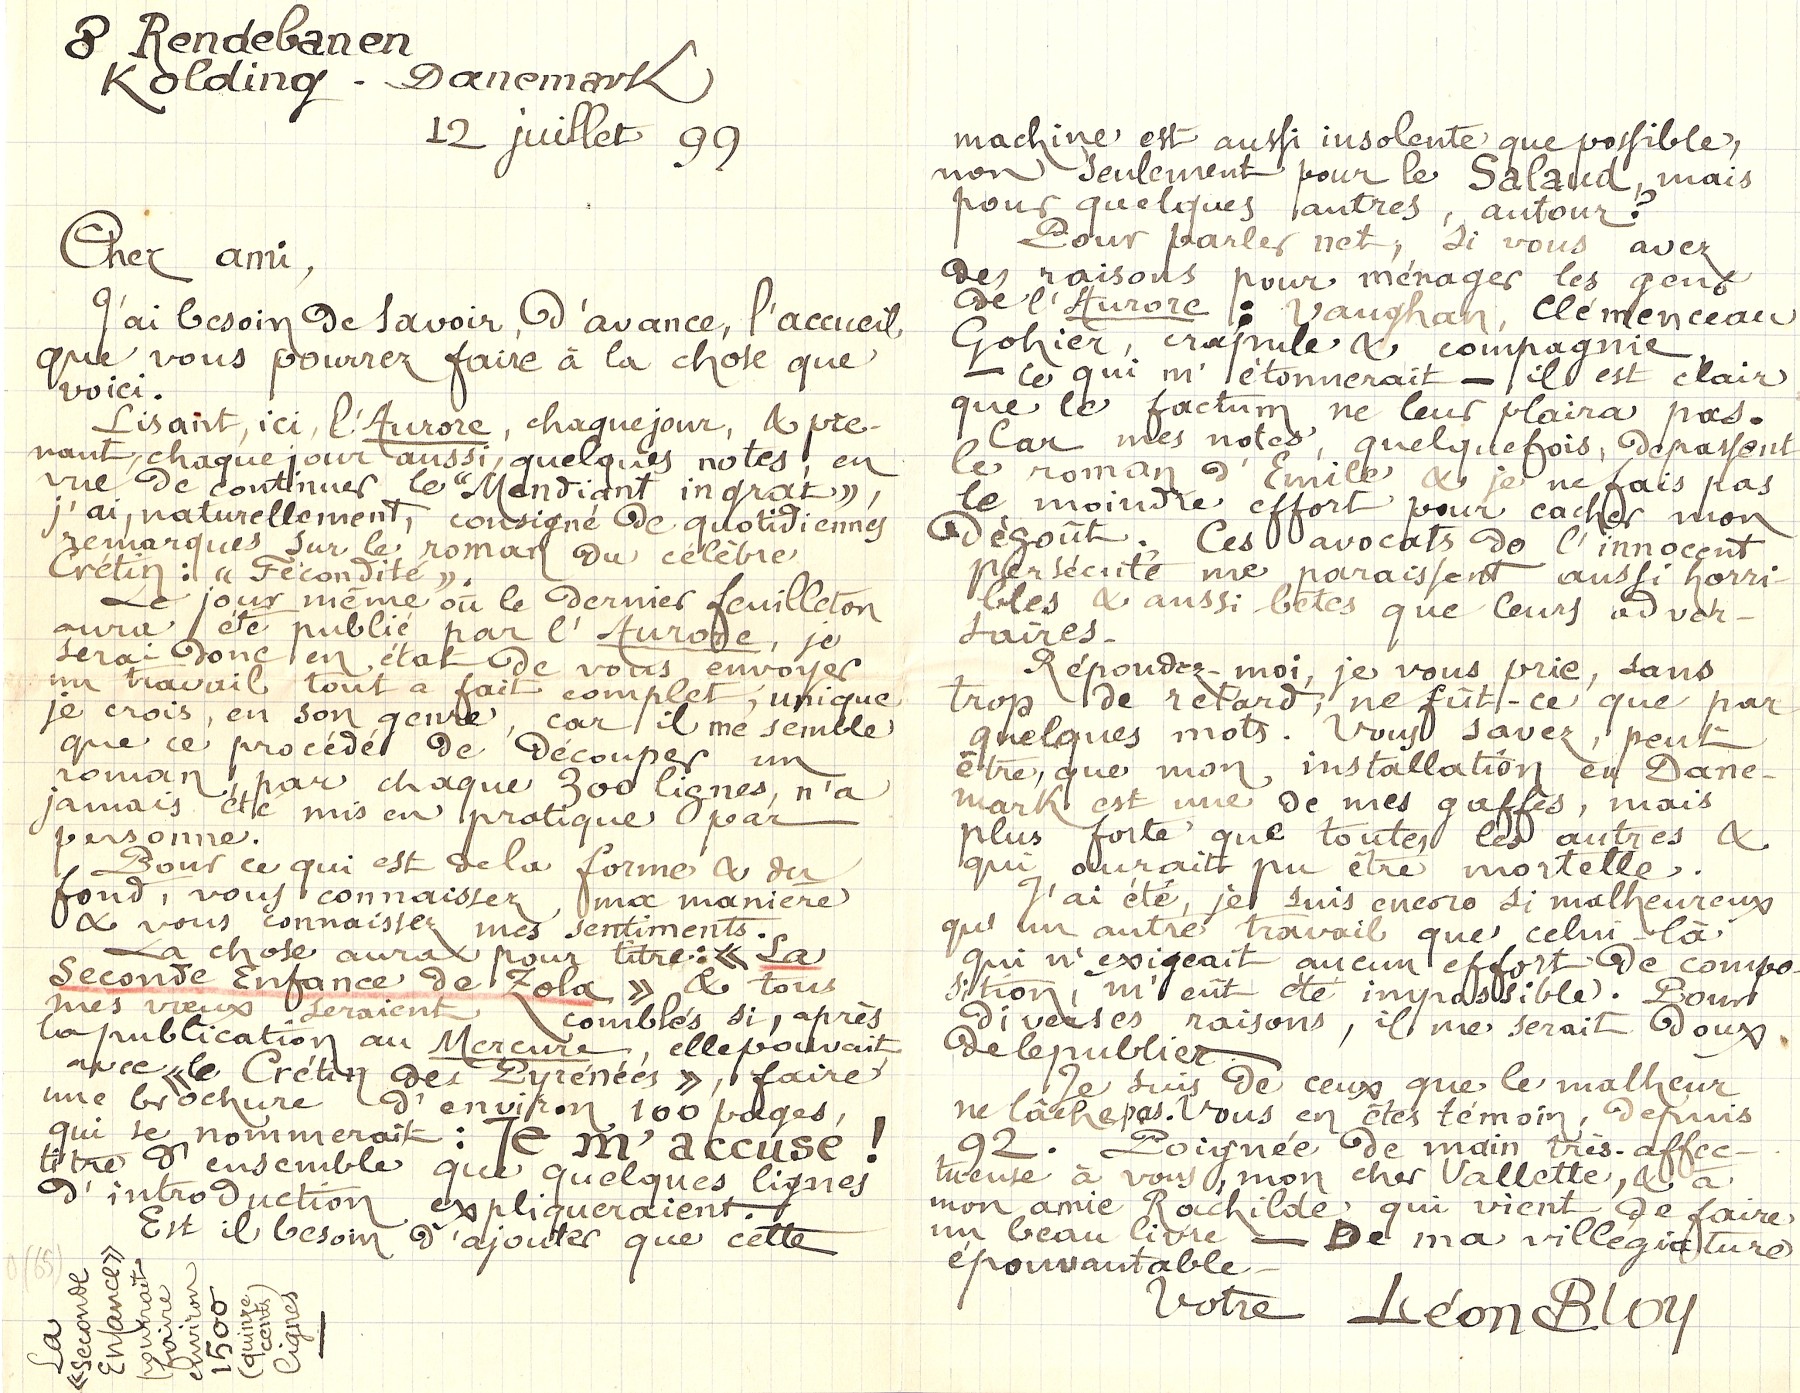 8 Rendebanen
Kolding - Danemark
12 juillet 99
Cher ami,
J'ai besoin de savoir, d'avance, l'accueil
que vous pourrez faire à la chose que
voici.
Lisant, ici, l'Aurore, chaque jour, & pre-
nant, chaque jour aussi, quelques notes, en
vue de continuer le "Mendiant ingrat",
j'ai, naturellement, consigné de quotidiennes
remarques sur le roman du célèbre
Crétin : « Fécondité ».
Le jour même où le dernier feuilleton
aura été publié par l'Aurore, je
serai donc en état de vous envoyer
un travail tout à fait complet, unique
je crois, en son genre, car il me semble
que ce procédé de découper un
roman, par chaque 300 lignes, n'a
jamais été mis en pratique par
personne.
Pour ce qui est de la forme & du
fond, vous connaissez ma manière
& vous connaissez mes sentiments.
La chose aura pour titre : « La
Seconde Enfance de Zola » & tous
mes vœux seraient comblés si, après
la publication au Mercure, elle pouvait
avec « le Crétin des Pyrénées », faire
une brochure d'environ 100 pages,
qui se nommerait : Je m'accuse !
titre d'ensemble que quelques lignes
d'introduction expliqueraient.
Est il besoin d'ajouter que cette
La
« Seconde
Enfance »
pourrait
faire
environ
1500
(quinze
cents)
lignes
machine est aussi insolente que possible,
non seulement pour le Salaud, mais
pour quelques autres, autour ?
Pour parler net, si vous avez
des raisons pour ménager les gens
de l'Aurore : Vaughan, Clémenceau
Gohier, crapule & compagnie
— ce qui m'étonnerait — il est clair
que le factum ne leur plaira pas.
Car mes notes, quelquefois, dépassent
le roman d'Emile & je ne fais pas
le moindre effort pour cacher mon
dégoût. Ces avocats de l'innocent
persécuté me paraissent aussi horri-
bles & aussi bêtes que leurs adver-
saires.
Répondez-moi, je vous prie, sans
trop de retard, ne fût-ce que par
quelques mots. Vous savez, peut
être, que mon installation en Dane-
mark est une de mes gaffes, mais
plus forte que toutes les autres &
qui aurait pu être mortelle.
J'ai été, je suis encore si malheureux
qu'un autre travail que celui-là
qui n'exigeait aucun effort de compo-
sition, m'eût été impossible. Pour
diverses raisons, il me serait doux
de le publier.
Je suis de ceux que le malheur
ne lâche pas. Vous en êtes témoin, depuis
92. Poignée de main très-affec-
tueuse à vous, mon cher Vallette, & à
mon amie Rachilde qui vient de faire
un beau livre — De ma villégiature
épouvantable —
Votre Léon Bloy